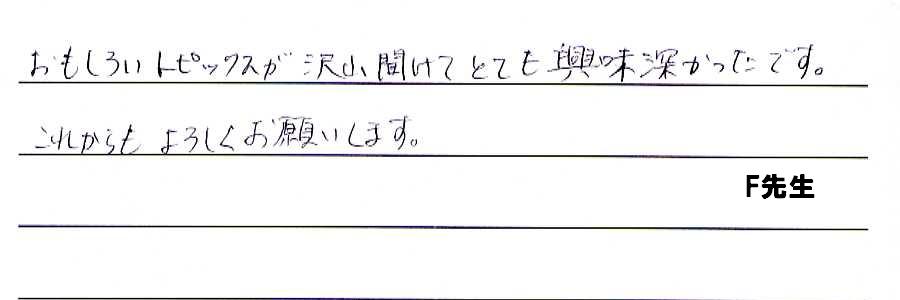 おもしろいトピックスが沢山聞けてとても興味深かったです。
これからもよろしくお願いします。
F先生